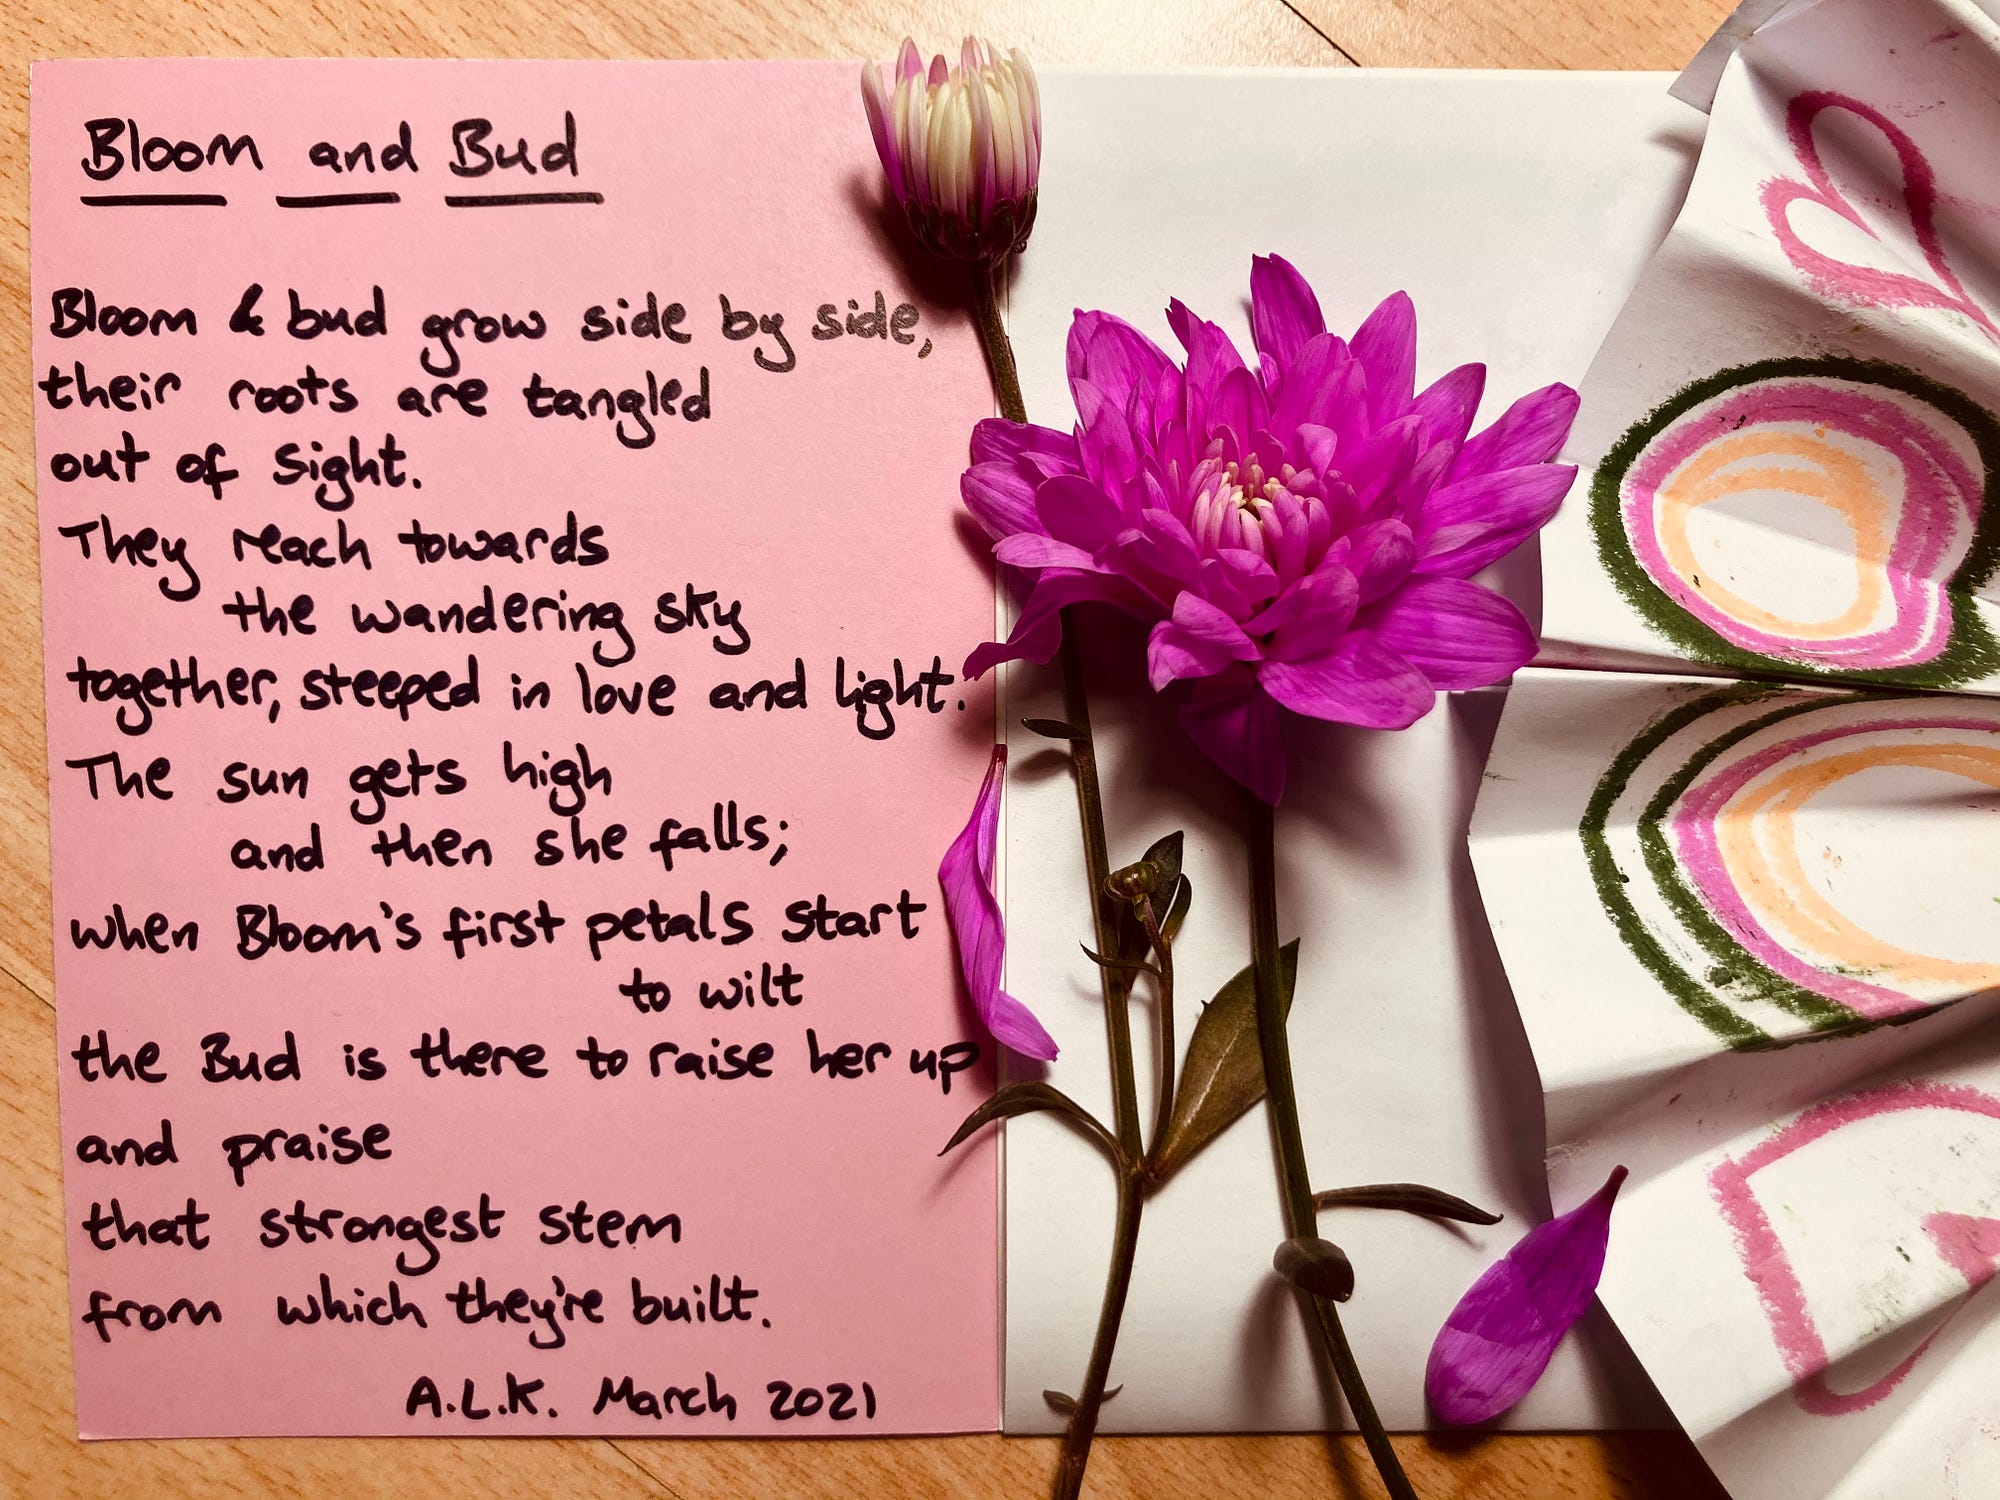 Bloom and Bud
Bloom & bud grow side by side,
their roots are tangled
out of sight.
They reach towards
the wandering sky
together, steeped in love and light.
The sun gets high
and then she falls;
when Bloom's first petals start
to wilt
the Bud is there to raise her up
and praise
that strongest stem
from which they're built.
A.L.K. March 2021